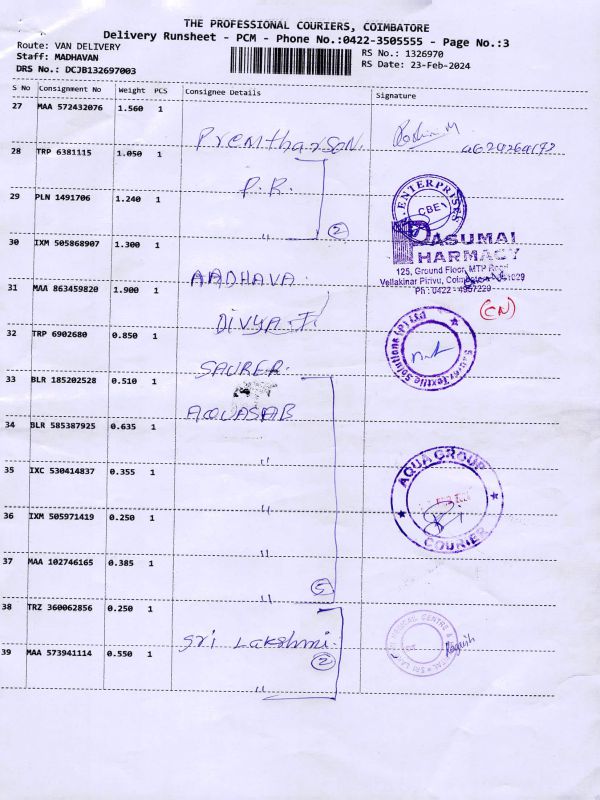 THE PROFESSIONAL COURIERS, COIMBATORE
Delivery Runsheet - PCM - Phone No.:0422-3505555 - Page No.:3
Route: VAN DELIVERY
RS No.: 1326970
Staff: MADHAVAN
RS Date: 23-Feb-2024
DRS No.: DCJB132697003
S No Consignment No Weight PCS Consignee Details Signature
27 MAA 572432076 1.560 1
PremTharson.
28 TRP 6381115 1.050 1
P.R.
29 PLN 1491706 1.240 1
" 2
ENTERPRISES
CBE
30 IXM 505868907 1.300 1
AADHAVA
PASUMAI
PHARMACY
125, Ground Floor, MTP Road
Vellakinar Pirivu, 
Ph : 0422 - 4957229
31 MAA 863459820 1.900 1
DIVYA
(CN)
32 TRP 6902680 0.850 1
SAURER.
Saurer Textile Solutions (P) Ltd
33 BLR 185202528 0.510 1
AQUASUB
34 BLR 585387925 0.635 1
"
35 IXC 530414837 0.355 1
"
AQUA GROUP
COURIER
36 IXM 505971419 0.250 1
"
37 MAA 102746165 0.385 1
" 5
38 TRZ 360062856 0.250 1
Sri Lakshmi.
2
39 MAA 573941114 0.550 1
"
MEDICAL CENTRE &